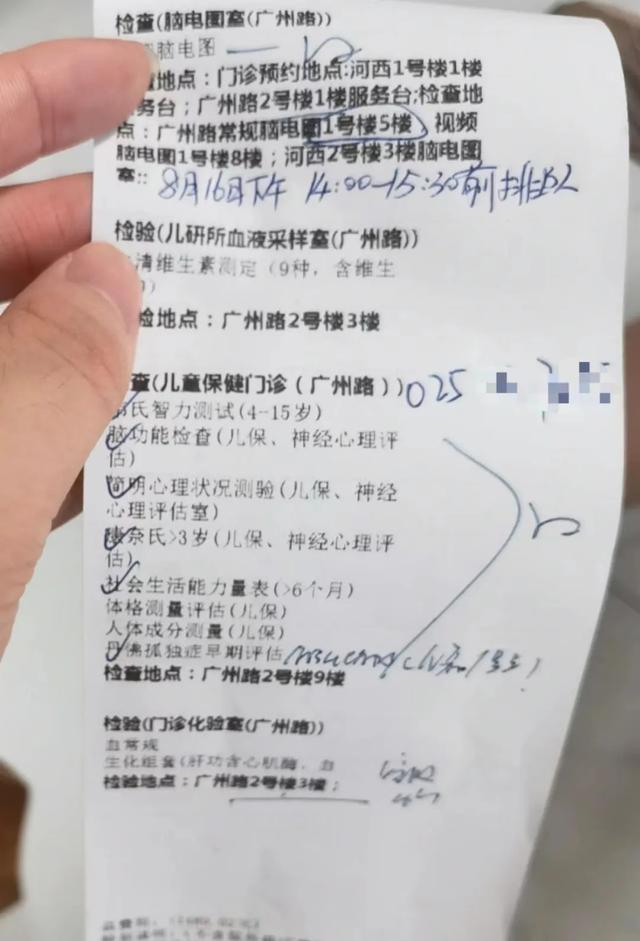 检查(脑电图室(广州路))
脑电图
检查地点：门诊预约地点:河西1号楼1楼
服务台；广州路2号楼1楼服务台;检查地
点：广州路常规脑电图1号楼5楼，视频
脑电图1号楼8楼；河西2号楼3楼脑电图
室::
8月16日下午 14:00-15:30前排队
检验(儿研所血液采样室(广州路))
清维生素测定（9种，含维生
验地点：广州路2号楼3楼
查(儿童保健门诊（广州路）)
025
氏智力测试(4-15岁)
脑功能检查(儿保、神经心理评
估)
简明心理状况测验(儿保、神经
心理评估室)
奈氏>3岁(儿保、神经心理评
估)
社会生活能力量表(>6个月)
体格测量评估(儿保)
人体成分测量(儿保)
丹佛孤独症早期评估
检查地点：广州路2号楼9楼
检验(门诊化验室(广州路))
血常规
生化组套(肝功含心肌酶、血
检验地点：广州路2号楼3楼；